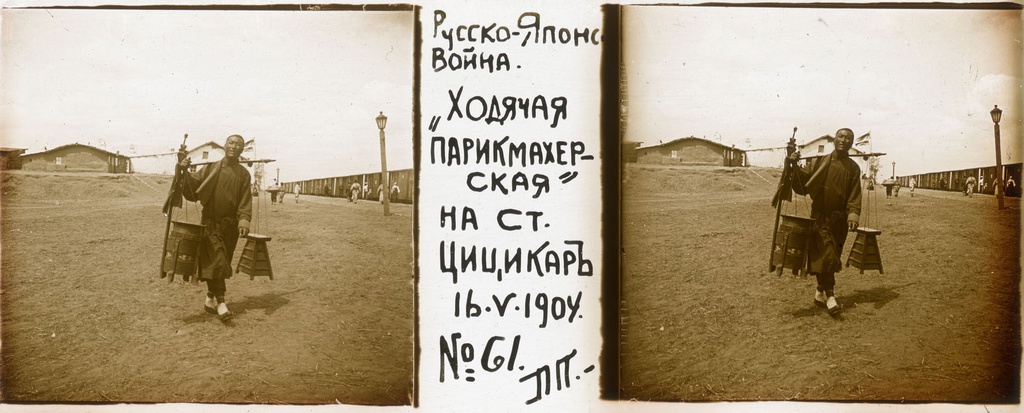 Русско-Японс
Война.
„Ходячая
парикмахер-
ская”
на ст.
Цицикаръ
16.V.1904.
№ 61.
ПП.-